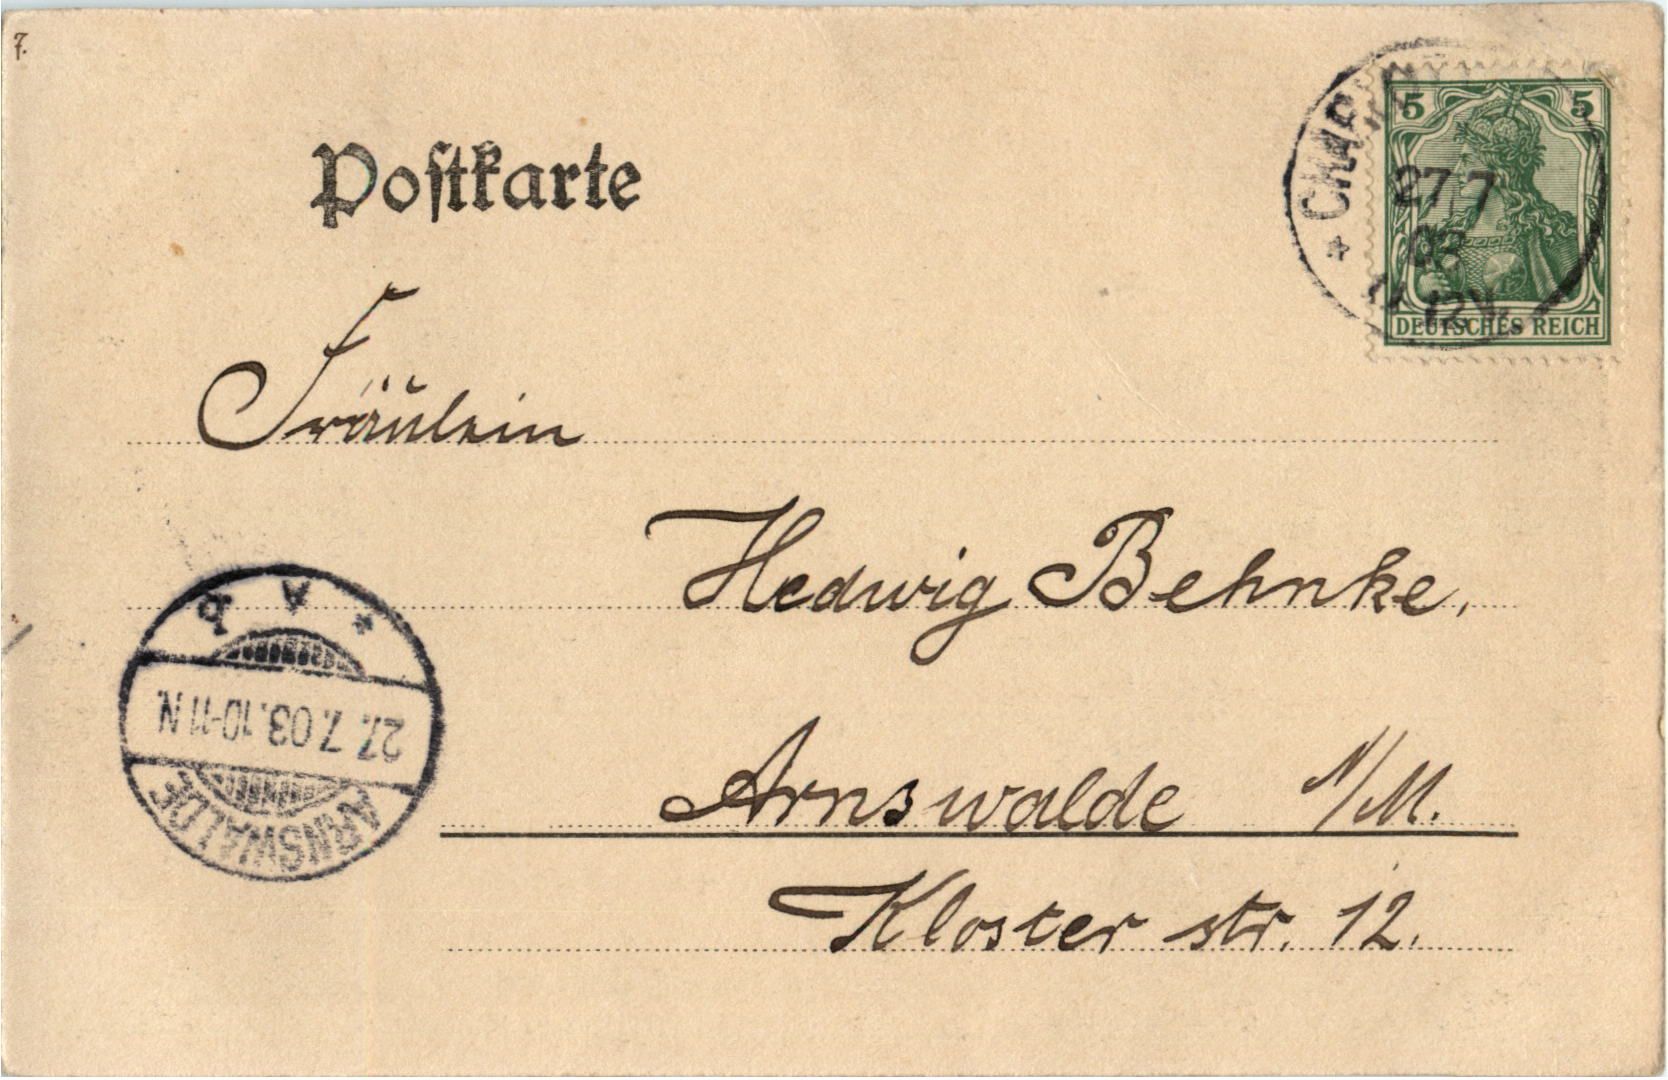 7.
Postkarte
5 5
27.7
03
11-12V.
DEUTSCHES REICH
Fräulein
Hedwig Behnke,
Arnswalde N/M.
Kloster str. 12.
* A b
27. 7. 03. 10-11 N.
ARNSWALDE